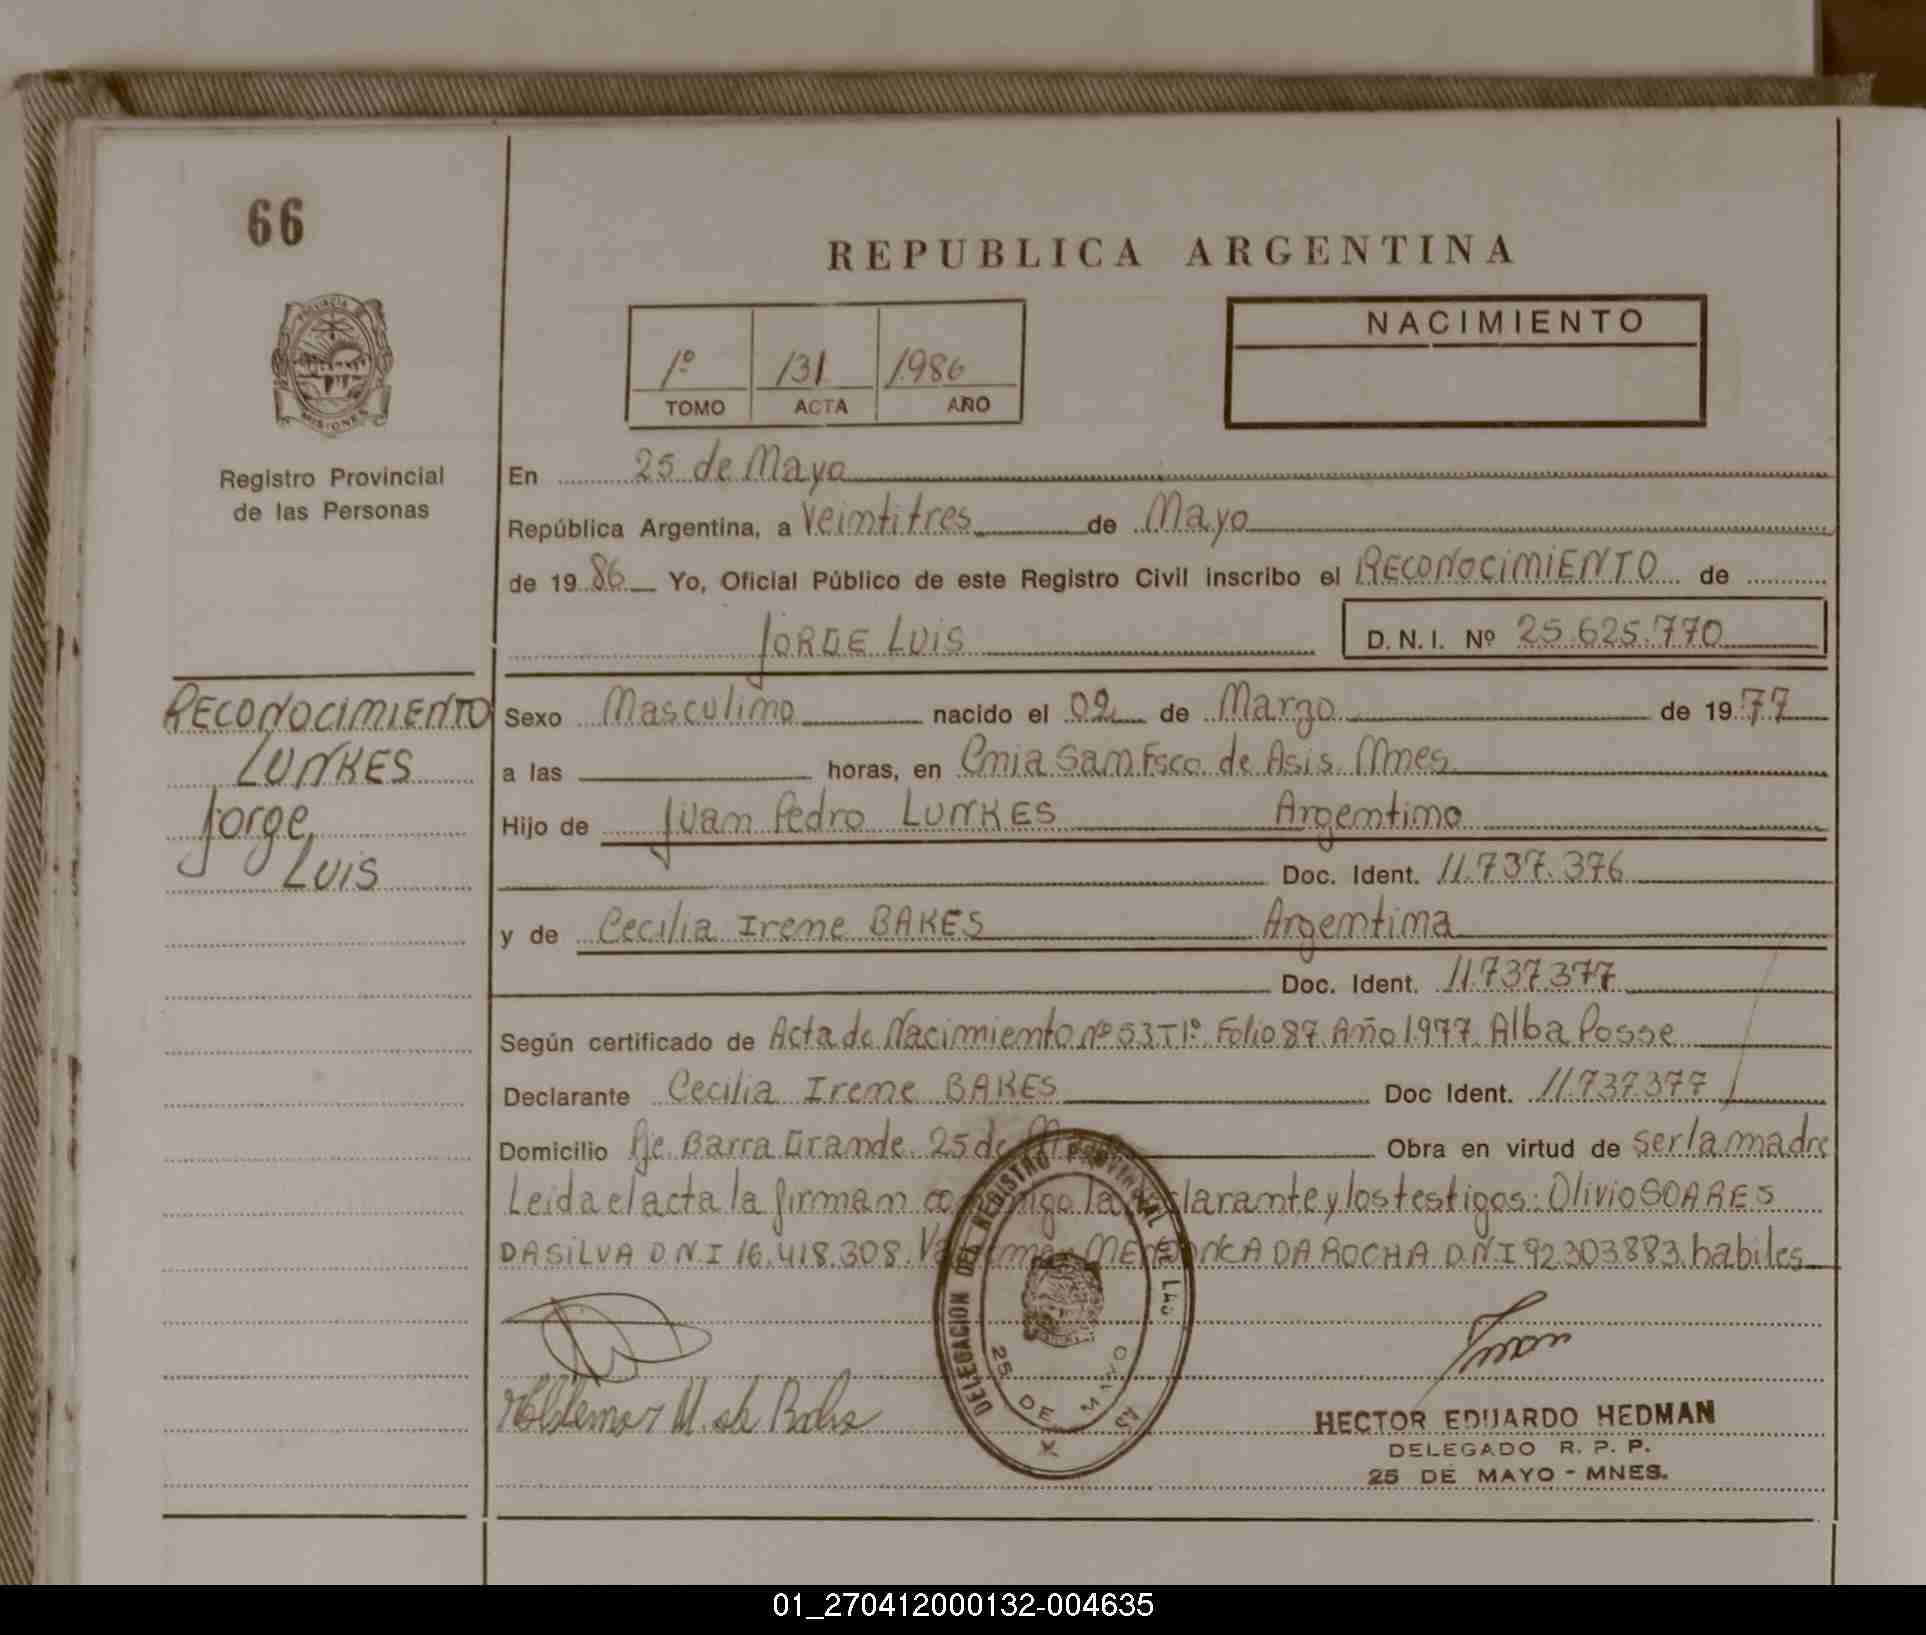 66
REPUBLICA ARGENTINA
1º 131 1986
TOMO ACTA AÑO
NACIMIENTO
PROVINCIA DE
MISIONES
Registro Provincial
de las Personas
En 25 de Mayo
República Argentina, a Veintitres de Mayo
de 19 86 Yo, Oficial Público de este Registro Civil inscribo el RECONOCIMIENTO de
JORGE LUIS D.N.I. Nº 25.625.770
RECONOCIMIENTO
LUNKES
Jorge
LUIS
Sexo Masculino nacido el 02 de Marzo de 19 77
a las horas, en Cnia San Fsco de Asis Mnes
Hijo de Juan Pedro LUNKES Argentino
Doc. Ident. 11.737.376
y de Cecilia Irene BAKES Argentina
Doc. Ident. 11.737.377
Según certificado de Acta de Nacimiento Nº 53 T 1º Folio 87 Año 1977 Alba Posse
Declarante Cecilia Irene BAKES Doc Ident. 11.737.377
Domicilio Pje. Barra Grande 25 de Obra en virtud de ser la madre
Leida el acta la firman conmigo la declarante y los testigos: Olivio SOARES
DA SILVA D.N.I 16.418.308. MENDONCA DA ROCHA D.N.I 92.303.883. habiles
DELEGACION DEL REGISTRO PROVINCIAL DE LAS
25 DE MAYO
HECTOR EDUARDO HEDMAN
DELEGADO R. P. P.
25 DE MAYO - MNES.
01_270412000132-004635